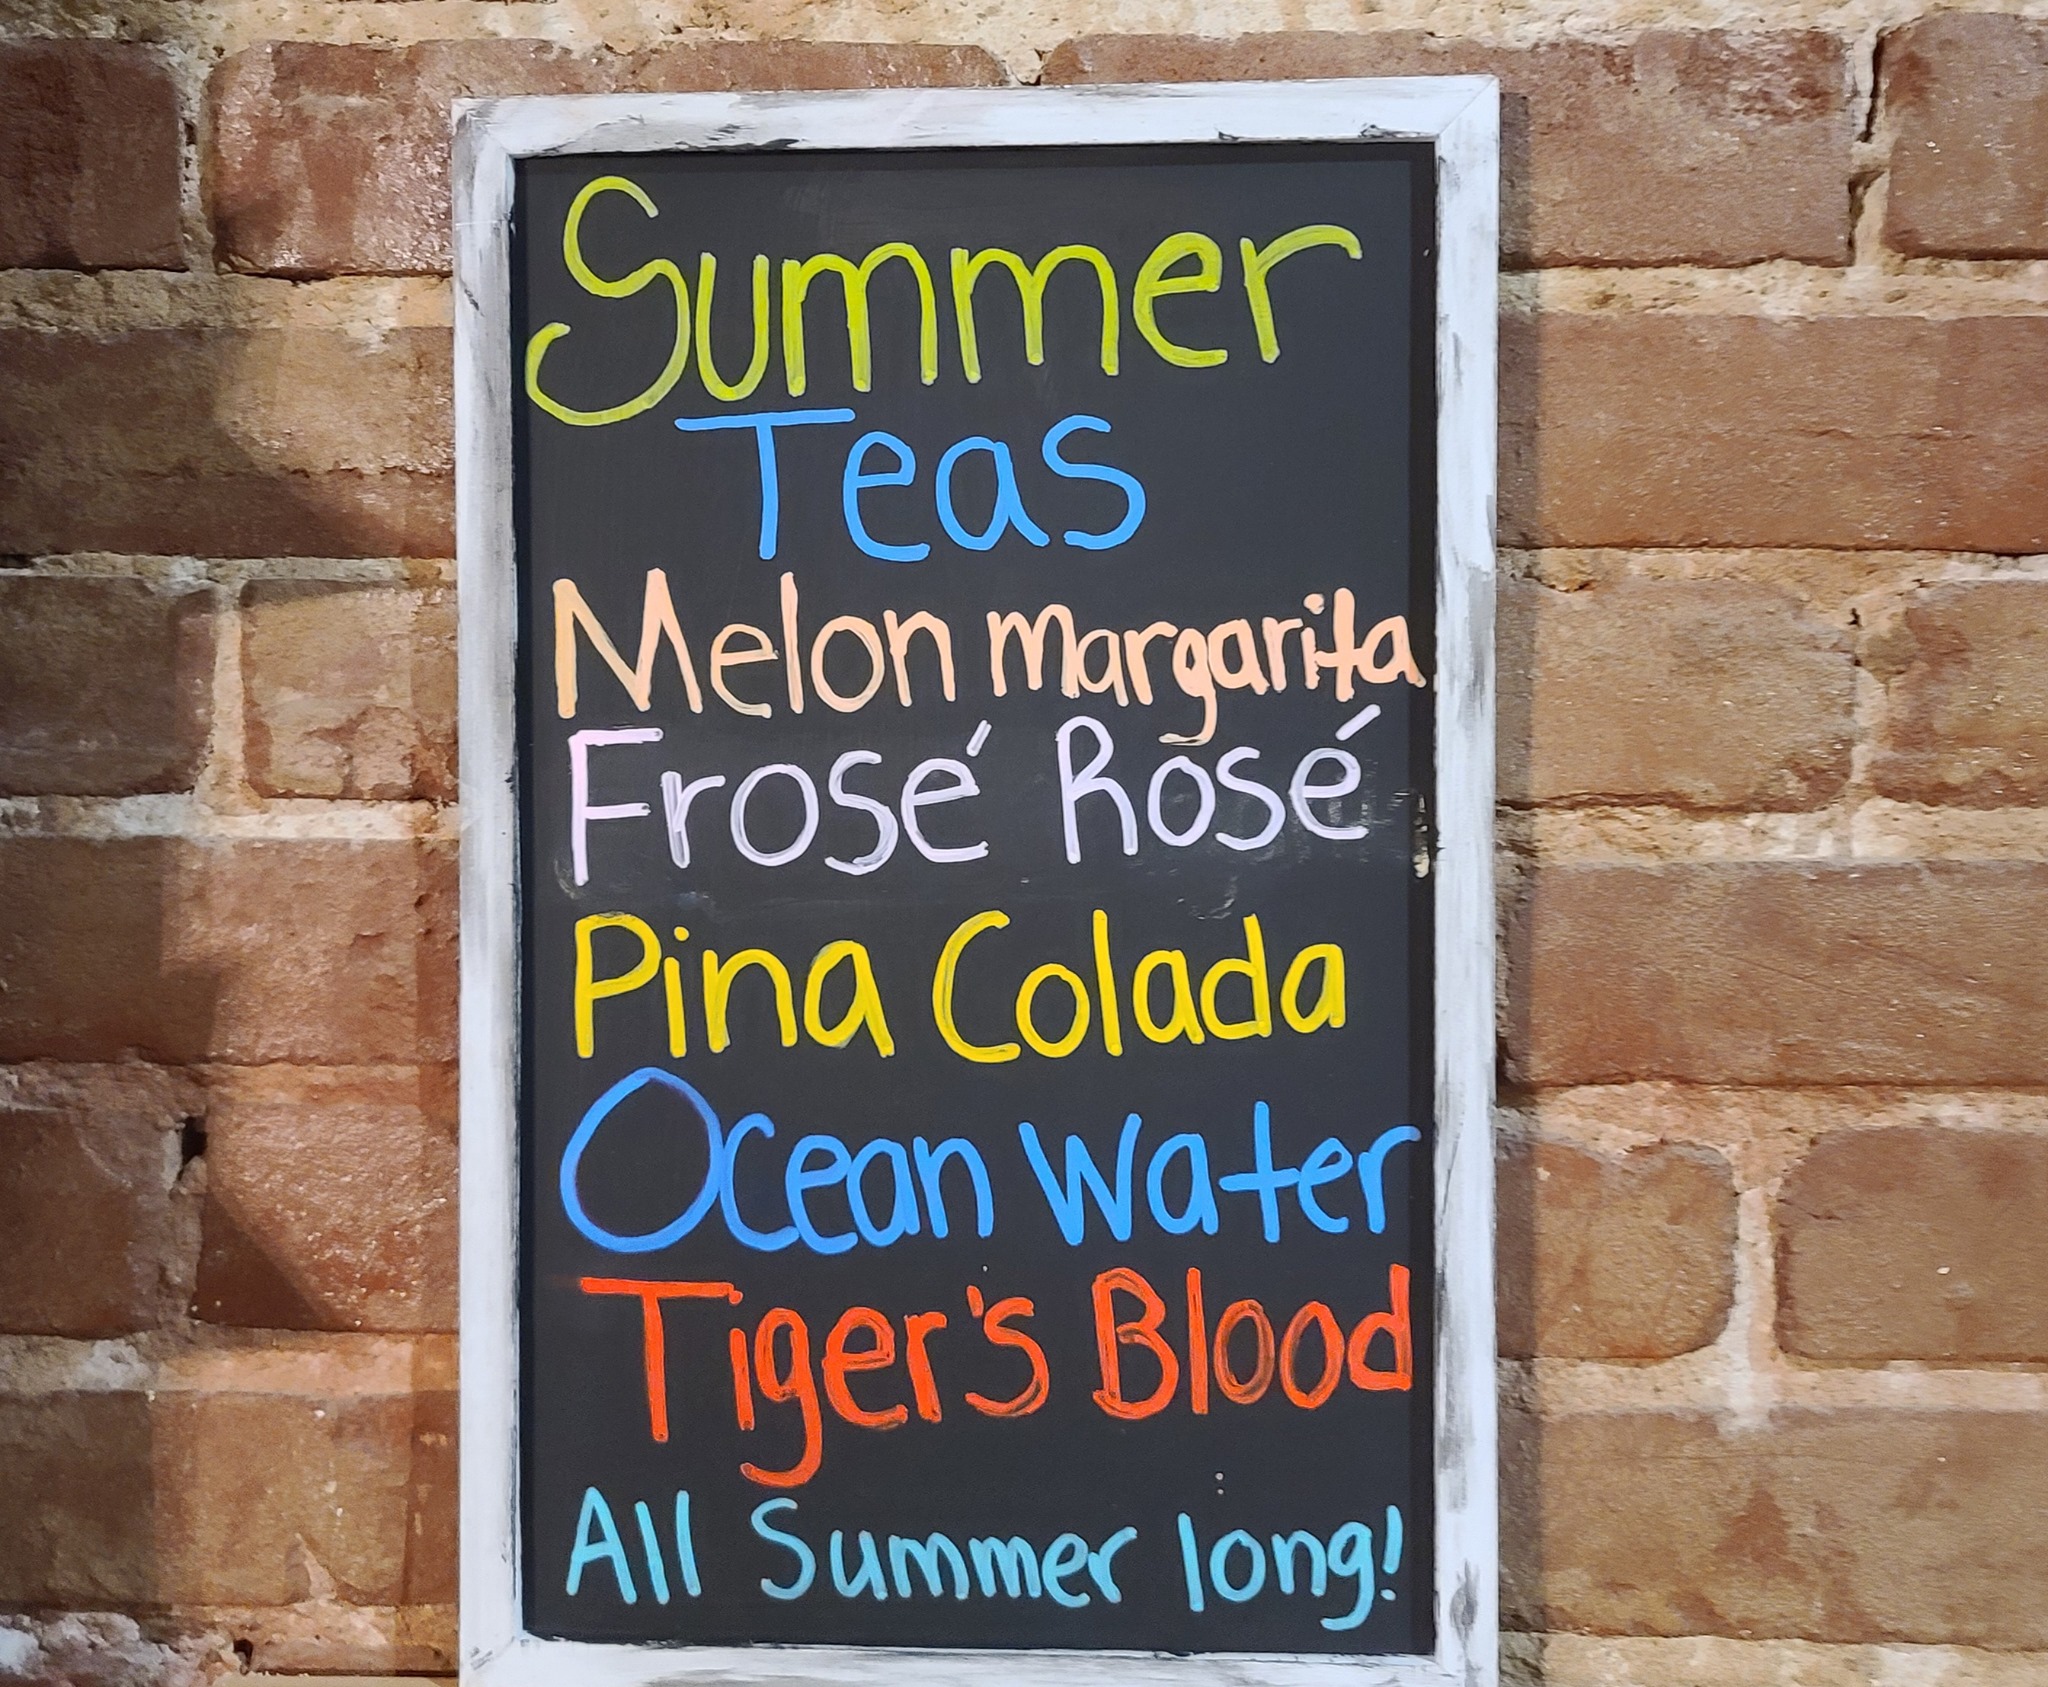 Summer
Teas
Melon margarita
Frosé Rosé
Pina Colada
Ocean Water
Tiger's Blood
All Summer long!